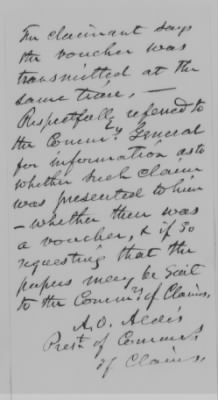 The claimant says
the voucher was
transmitted at the
same time, —
Respectfully referred to
the Commy General
for information as to
whether such claim
was presented to him
- whether there was
a voucher, & if so
requesting that the
papers may be sent
to the Commrs of Claims.
A. O. Aldis
Prest. of Commrs
of Claims.